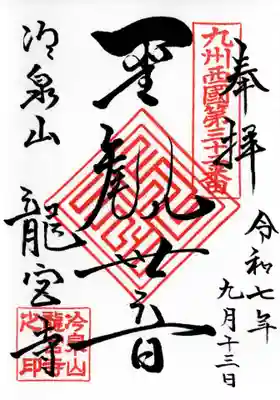 奉拝
九州西國第三十二番
令和七年
九月十三日
聖觀世音
冷泉山
龍宮寺
冷泉山
龍宮寺
之印